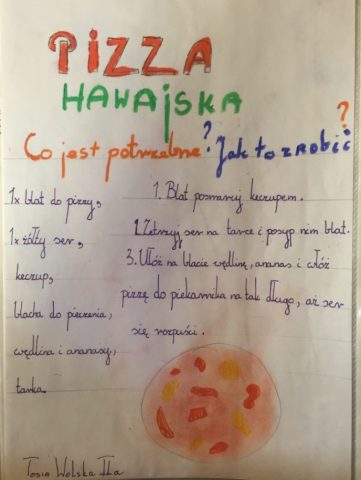 PIZZA
HAWAJSKA
Co jest potrzebne?
1x blat do pizzy,
1x żółty ser,
keczup,
blacha do pieczenia,
wędlina i ananasy,
tarka.
Jak to zrobić?
1. Blat posmaruj keczupem.
2. Zetrzyj ser na tarce i posyp nim blat.
3. Ułóż na blacie wędlinę, ananas i włóż
pizzę do piekarnika na tak długo, aż ser
się rozpuści.
Tosia Wolska IIa